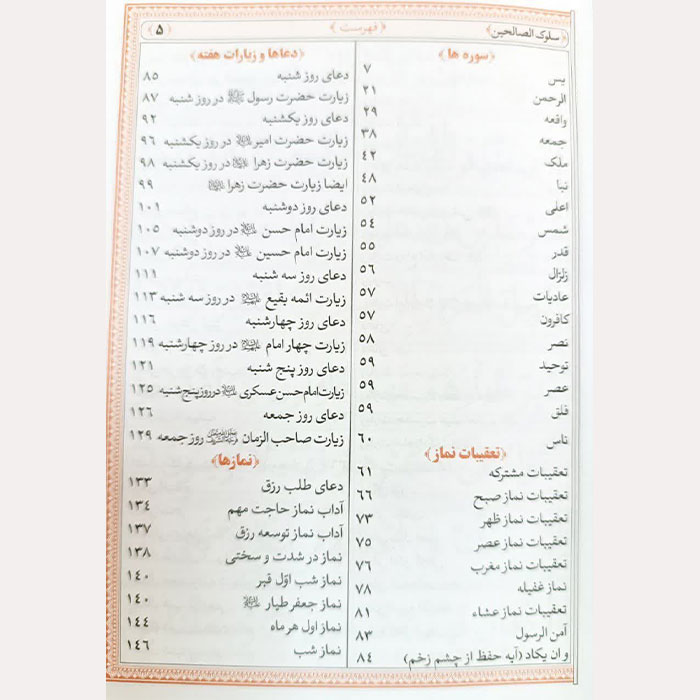 سلوک الصالحین
﴿ فهرست ﴾
﴿ ۵ ﴾
﴿سوره ها﴾
یس ۷
الرحمن ۲۱
واقعه ۲۹
جمعه ۳۸
ملک ۴۲
نبا ۴۸
اعلی ۵۲
شمس ۵۴
قدر ۵۵
زلزال ۵۶
عادیات ۵۷
کافرون ۵۷
نصر ۵۸
توحید ۵۹
عصر ۵۹
فلق ۵۹
ناس ۶۰
﴿تعقیبات نماز﴾
تعقیبات مشترکه ۶۱
تعقیبات نماز صبح ۶۶
تعقیبات نماز ظهر ۷۳
تعقیبات نماز عصر ۷۵
تعقیبات نماز مغرب ۷۶
نماز غفیله ۷۸
تعقیبات نماز عشاء ۸۱
آمن الرسول ۸۳
و ان یکاد (آیه حفظ از چشم زخم) ۸۴
﴿دعاها و زیارات هفته﴾
دعای روز شنبه ۸۵
زیارت حضرت رسول ﷺ در روز شنبه ۸۷
دعای روز یکشنبه ۹۲
زیارت حضرت امیر در روز یکشنبه ۹۶
زیارت حضرت زهرا در روز یکشنبه ۹۸
ایضا زیارت حضرت زهرا ۹۹
دعای روز دوشنبه ۱۰۱
زیارت امام حسن در روز دوشنبه ۱۰۵
زیارت امام حسین در روز دوشنبه ۱۰۷
دعای روز سه شنبه ۱۱۱
زیارت ائمه بقیع در روز سه شنبه ۱۱۳
دعای روز چهارشنبه ۱۱۶
زیارت چهار امام در روز چهارشنبه ۱۱۹
دعای روز پنج شنبه ۱۲۱
زیارت امام حسن عسکری در روز پنج شنبه ۱۲۵
دعای روز جمعه ۱۲۶
زیارت صاحب الزمان روز جمعه ۱۲۹
﴿نمازها﴾
دعای طلب رزق ۱۳۳
آداب نماز حاجت مهم ۱۳۴
آداب نماز توسعه رزق ۱۳۷
نماز در شدت و سختی ۱۳۸
نماز شب اوّل قبر ۱۴۰
نماز جعفر طیار ۱۴۰
نماز اول هر ماه ۱۴۴
نماز شب ۱۴۶